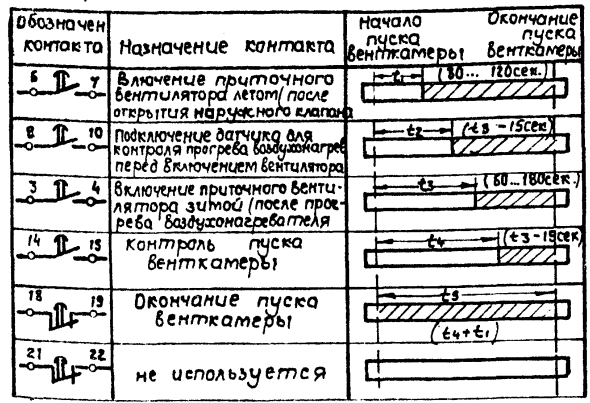 Обозначен контакта
Назначение контакта
Начало пуска венткамеры
Окончание пуска венткамеры
6 7
Включение приточного
вентилятора летом/после
открытия наружного клапана
t1 (80... 120сек.)
8 10
Подключение датчика для
контроля прогрева воздухонагрев
перед включением вентилятора
t2 (t3-15сек)
3 4
Включение приточного венти-
лятора зимой (после прог-
рева воздухонагревателя
t3 (60...180сек.)
14 15
контроль пуска
венткамеры
t4 (t3-15сек)
18 19
Окончание пуска
венткамеры
t5
(t4+t1)
21 22
не используется